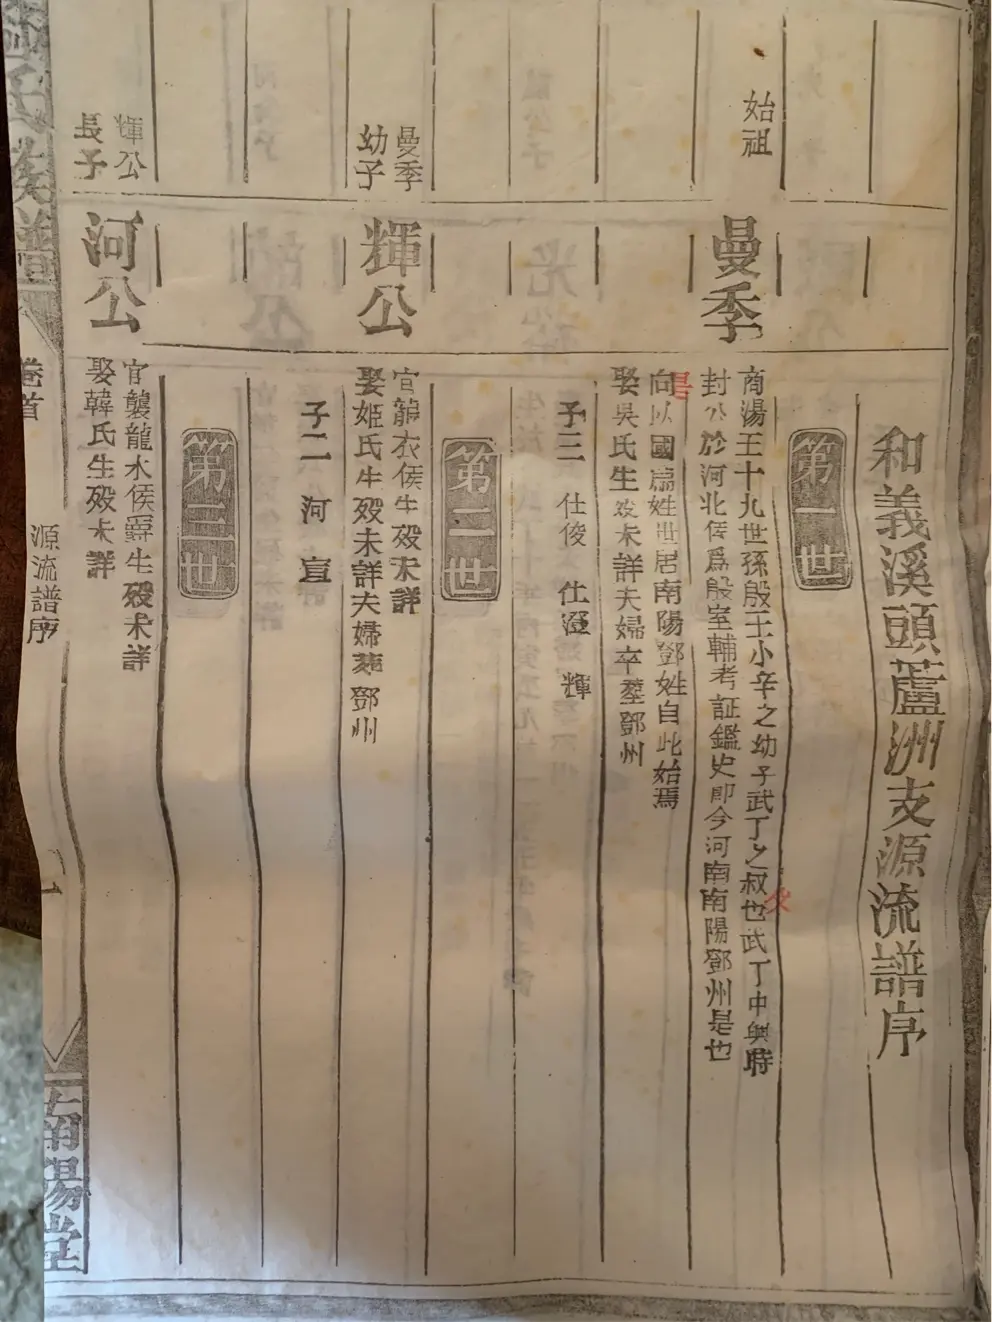 和義溪頭蘆洲支源流譜序
第一世
始祖
曼季
商湯王十九世孫殷王小辛之幼子武丁之叔也武丁中興時
封公於河北侯爲殷室輔考証鑑史即今河南南陽鄧州是也
向以國爲姓世居南陽鄧姓自此始焉
是
娶吳氏生歿未詳夫婦卒塟鄧州
子三 仕俊 仕澄 輝
第二世
曼季
幼子
輝公
官龍衣侯生歿未詳
娶姬氏生歿未詳夫婦塟鄧州
子二 河 宣
第三世
輝公
長子
河公
官襲龍水侯爵生歿未詳
娶韓氏生歿未詳
鄧氏族譜
卷首
源流譜序
一
南陽堂